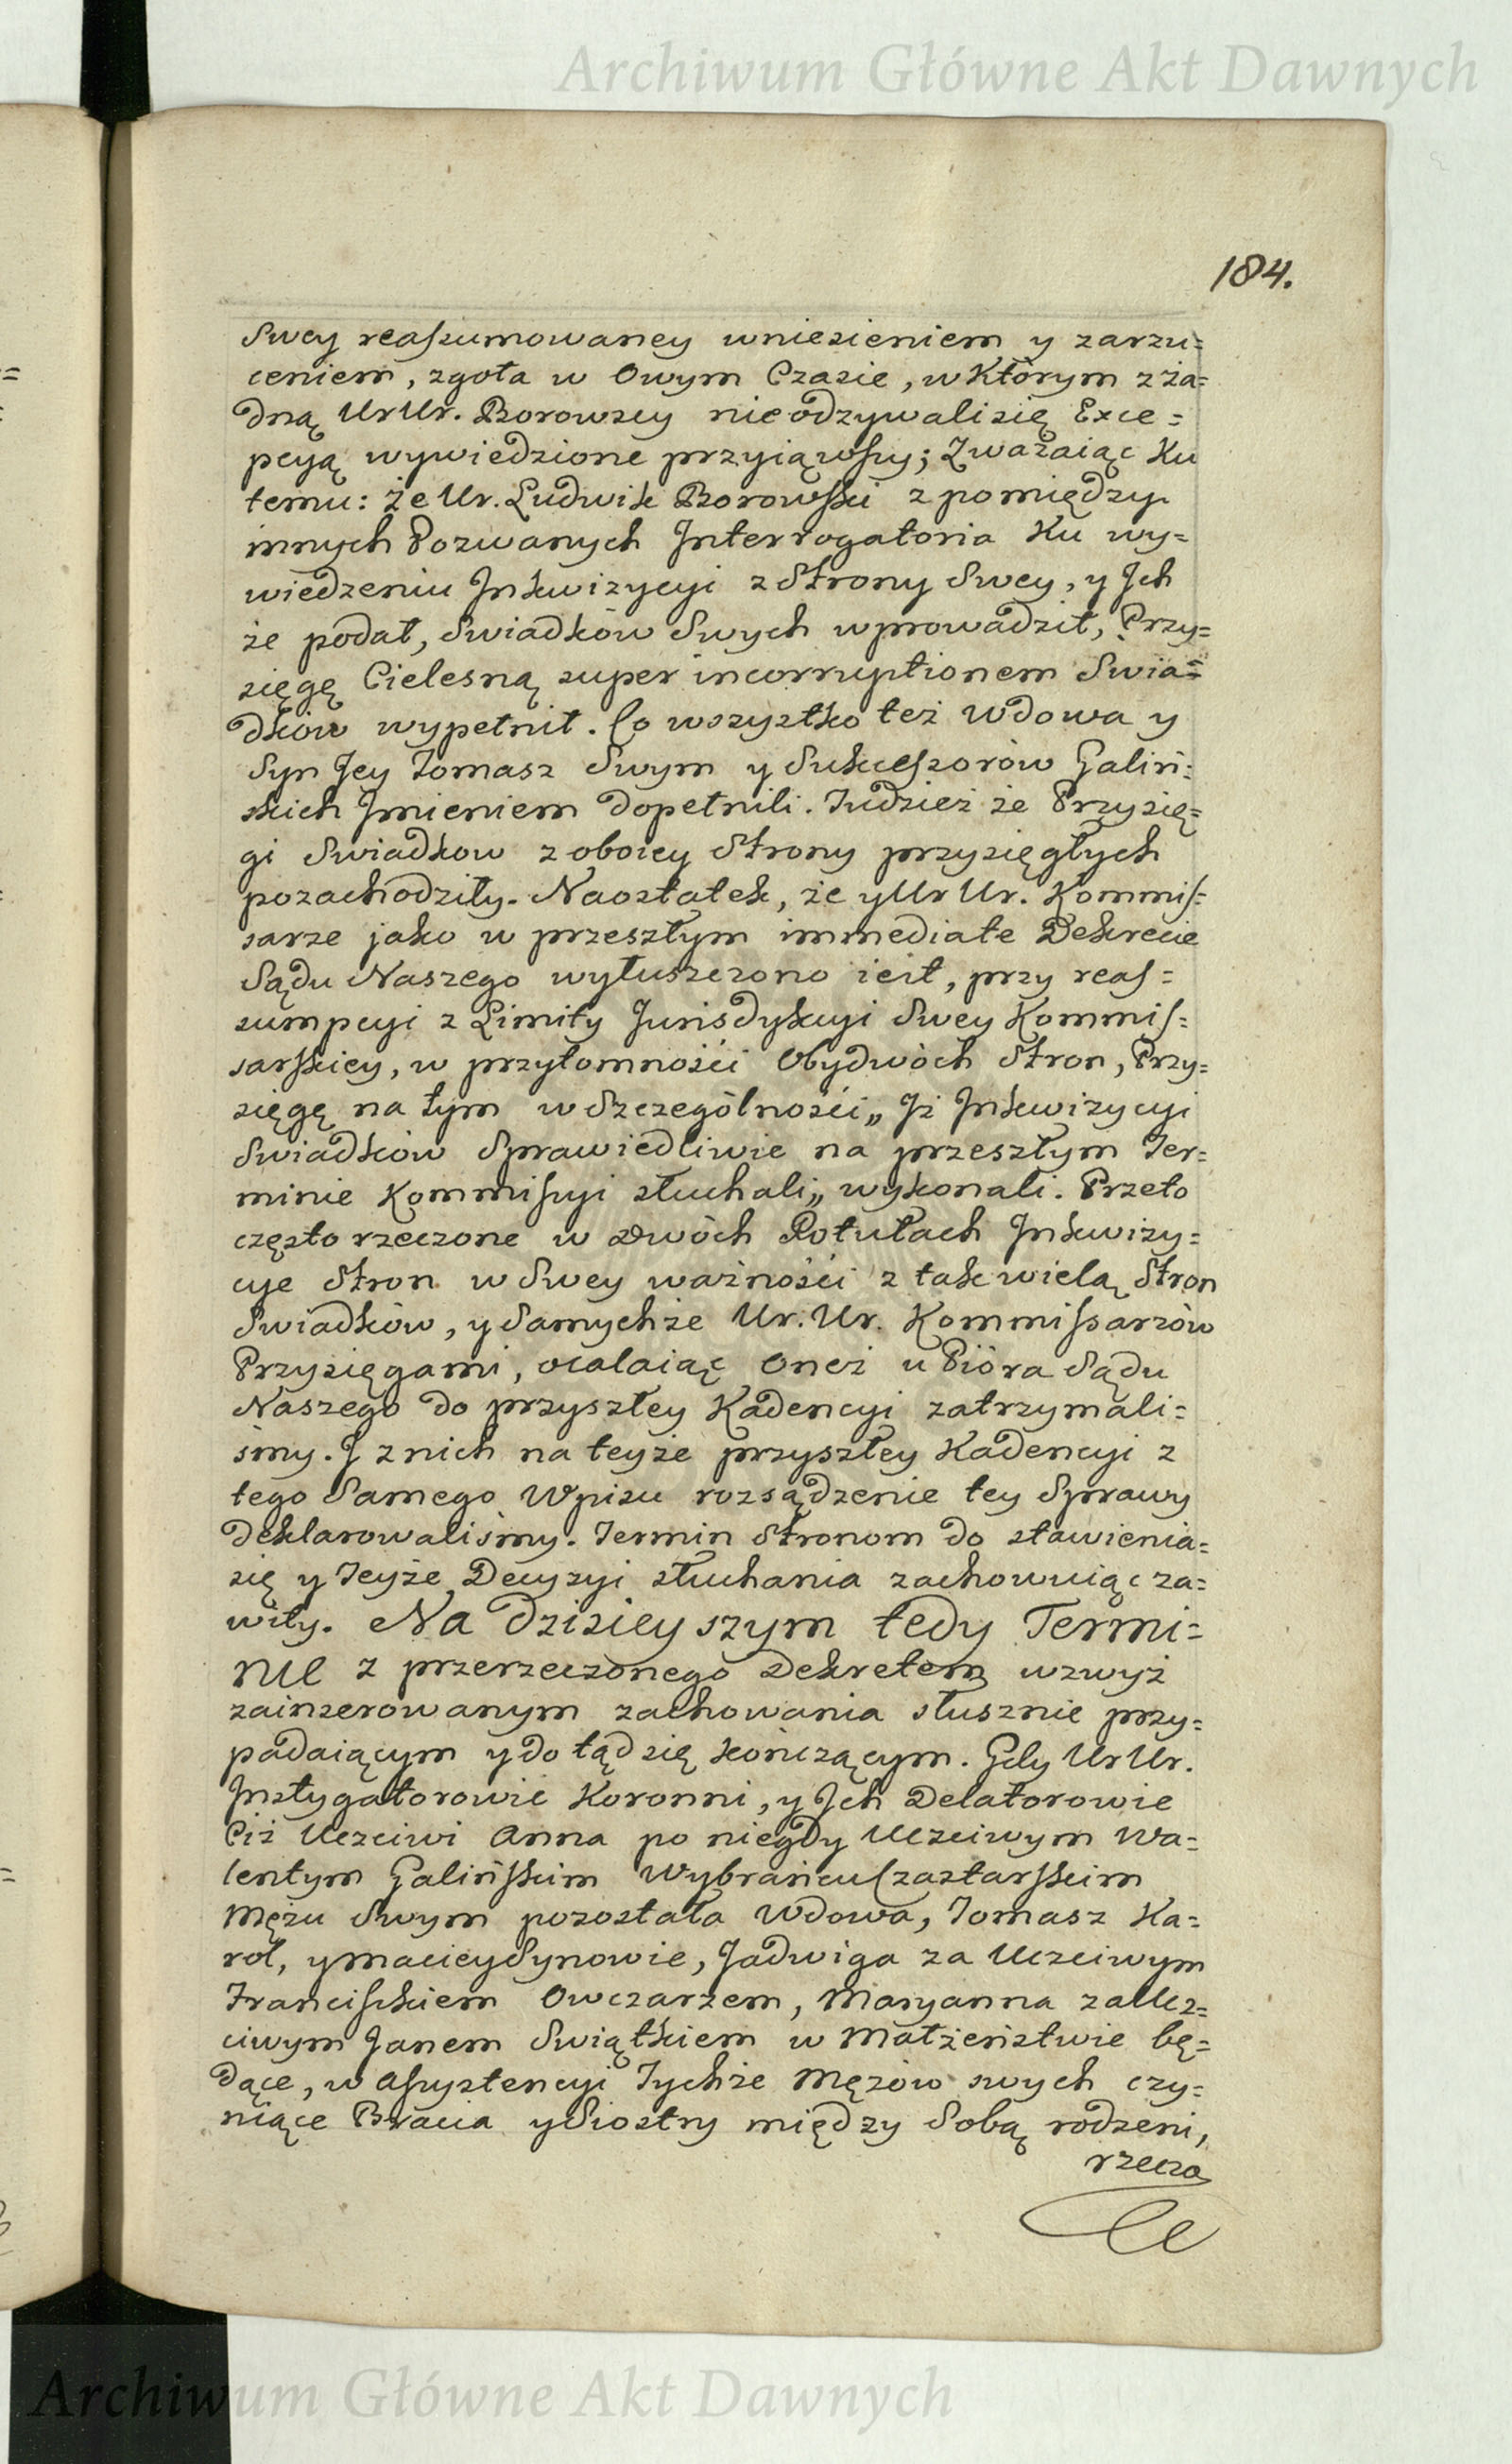 Archiwum Główne Akt Dawnych
184.
Swey reaſsumowaney wniesieniem y zarzu=
ceniem, zgoła w Owym Czasie, w Którym z ża=
dną UrUr. Borowscy nie odzywali się Exce=
pcyą wywiedzione przyiąwſzy; Zważaiąc Ku
temu: że Ur. Ludwik Borowſki z pomiędzy
innych Pozwanych Interrogatoria Ku wy=
wiedzeniu Inkwizycyi z Strony Swey, y Ich
że podał, Swiadków Swych wprowadził, Przy=
sięgę Cielesną super incorruptionem Swia=
dków wypełnił. Co wszystko też Wdowa y
Syn Jey Tomasz Swym y Sukceſsorów Galiń=
skich Imieniem dopełnili. Tudzież że Przysię=
gi Swiadkow z oboiey Strony przysięgłych
pozachodziły. Naostatek, że y Ur Ur. Kommiſ=
sarze jako w przeszłym immediate Dekrecie
Sądu Naszego wyłuszczono iest, przy reaſ=
sumpcyi z Limity Jurisdykcyi Swey Kommiſ=
sarſkiey, w przytomności Obydwóch Stron, Przy=
sięgę na tym w Szczególności„ Iż Inkwizycyi
Swiadków Sprawiedliwie na przeszłym Ter=
minie Kommiſsyi słuchali„ wykonali. Przeto
często rzeczone w Dwóch Rotułach Inkwizy=
cye Stron w Swey ważności z tak wielą Stron
Swiadków, y Samychże Ur. Ur. Kommiſsarzów
Przysięgami, ocalaiąc Oneż u Pióra Sądu
Naszego do przyszłey Kadencyi zatrzymali=
śmy. I z nich na teyże przyszłey Kadencyi z
tego Samego Wpisu rozsądzenie tey Sprawy
deklarowaliśmy. Termin Stronom do stawienia=
się y Teyże Decyzyi słuchania zachowuiąc za=
wity. Na dzisieyszym tedy Termi=
nie z przerzeczonego Dekretem wzwyż
zainserowanym zachowania słusznie przy=
padaiącym y do tąd się kończącym. Gdy Ur Ur.
Instygatorowie Koronni, y Ich Delatorowie
Ciż Uczciwi Anna po niegdy Uczciwym Wa=
lentym Galińſkim Wybrańcu Szastarſkim
Mężu Swym pozostała Wdowa, Tomasz Ka=
rol, y Maciey Synowie, Jadwiga za Uczciwym
Franciſzkiem Owczarzem, Maryanna za Ucz=
ciwym Janem Swiątkiem w Małżeństwie bę=
dące, w Aſsystencyi Tychże Mężów swych czy=
niące Bracia y Siostry między Sobą rodzeni,
rzeczo
Archiwum Główne Akt Dawnych